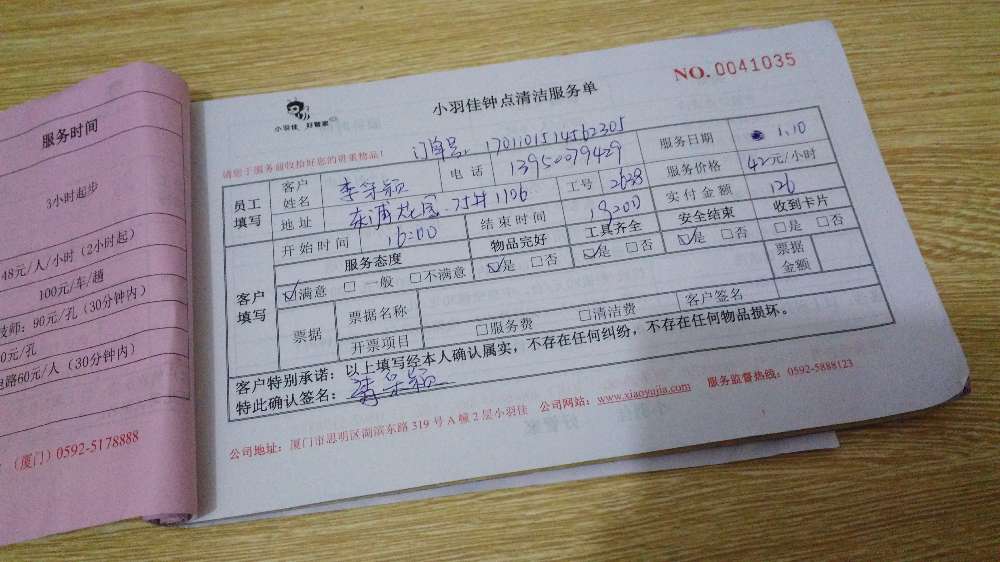 服务时间
3小时起步
48元/人/小时（2小时起）
100元/车/趟
技师：90元/孔（30分钟内）
0元/孔
电路60元/人（30分钟内）
（厦门）0592-5178888
NO. 0041035
小羽佳 好管家
小羽佳钟点清洁服务单
请您于服务前收拾好您的贵重物品！
订单号：1701101514562305
员工填写 客户姓名 李呈颖 电话 13950079429 服务日期 1.10
地址 东浦花园 1106 工号 2628 服务价格 42元/小时
开始时间 16:00 结束时间 19:00 实付金额 126
客户填写 服务态度 物品完好 工具齐全 安全结束 收到卡片
☑满意 □一般 □不满意 ☑是 □否 ☑是 □否 ☑是 □否 □是 □否
票据 票据名称 票据金额
开票项目 □服务费 □清洁费 客户签名
客户特别承诺：以上填写经本人确认属实，不存在任何纠纷，不存在任何物品损坏。
特此确认签名：李呈颖
公司地址：厦门市思明区湖滨东路319号A幢2层小羽佳 公司网站：www.xiaoyujia.com 服务监督热线：0592-5888123